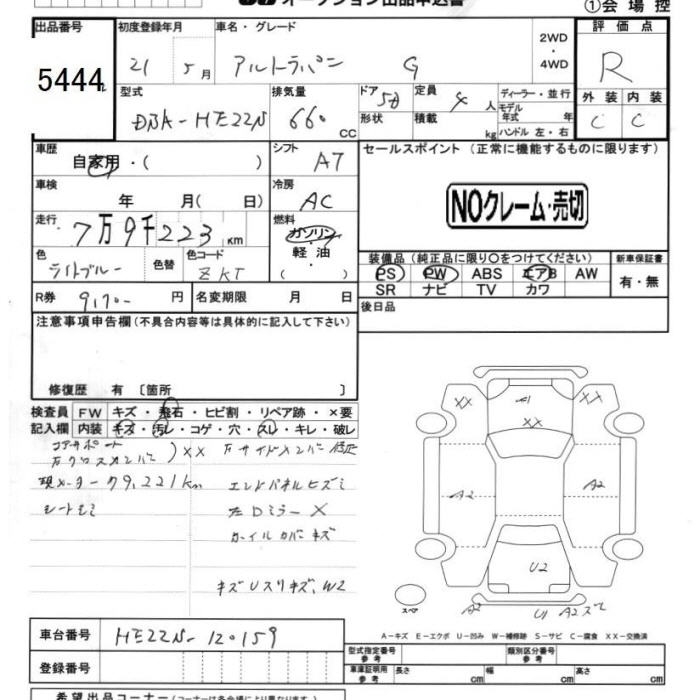 オークション出品申込書
①会場控
出品番号 初度登録年月 車名・グレード 評価点
5444 21 5月 アルトラパン G 2WD・4WD R
型式 排気量 ドア形状 定員 ディーラー・並行 外装 内装
DBA-HE22S 660 CC 5D 4人 モデル年式 年 C C
積載 kg ハンドル 左・右
車歴 シフト セールスポイント(正常に機能するものに限ります)
自家用・( ) A7
車検 冷房 NOクレーム・売切
年 月( 日) AC
走行 燃料
7万9千223km ガソリン・軽油・
色 色替 色コード 装備品(純正品に限り○をつけてください) 新車保証書
ライトブルー ZKT PS PW ABS エアB AW 有・無
SR ナビ TV カワ
R券 9,170- 円 名変期限 月 日 後日品
注意事項申告欄(不具合内容等は具体的に記入して下さい)
修復歴 有〔箇所 〕
検査員記入欄 FW キズ・飛石・ヒビ割・リペア跡・×要
内装 キズ・汚レ・コゲ・穴・スレ・キレ・破レ
コアサポート
右クロスメンバー )XX 右サイドメンバー修正
現メーター79,221km エンドパネルヒズミ
シートシミ 左Dミラー X
ホイルカバーキズ
キズUスリキズ、W2
XX A1 XX
XX
A2 A2
U2
スペア A2 U1 A2ズレ
A-キズ E-エクボ U-凹み W-補修跡 S-サビ C-腐食 XX-交換済
車台番号 HE22S-120159
型式指定番号 参考 類別区分番号 参考
登録番号 車庫証明用 参考 長さ cm 幅 cm 高さ cm
希望出品コーナー(コーナーは各会場により異なります)